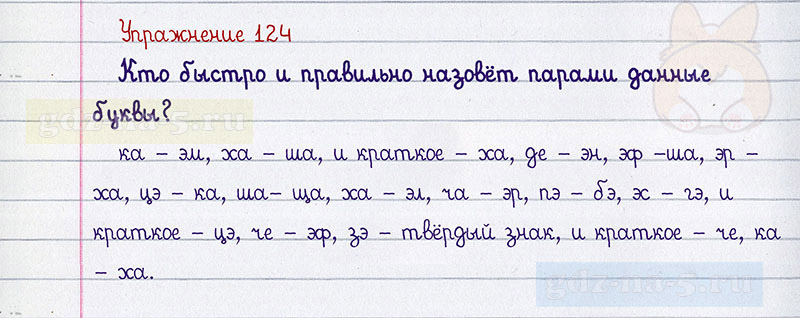 Упражнение 124
Кто быстро и правильно назовёт парами данные
буквы?
ка – эм, ха – ша, и краткое – ха, де – эн, эф –ша, эр –
ха, цэ – ка, ша– ща, ха – эл, ча – эр, пэ – бэ, эс – гэ, и
краткое – цэ, че – эф, зэ – твёрдый знак, и краткое – че, ка
– ха.
gdz-na-5.ru
gdz-na-5.ru